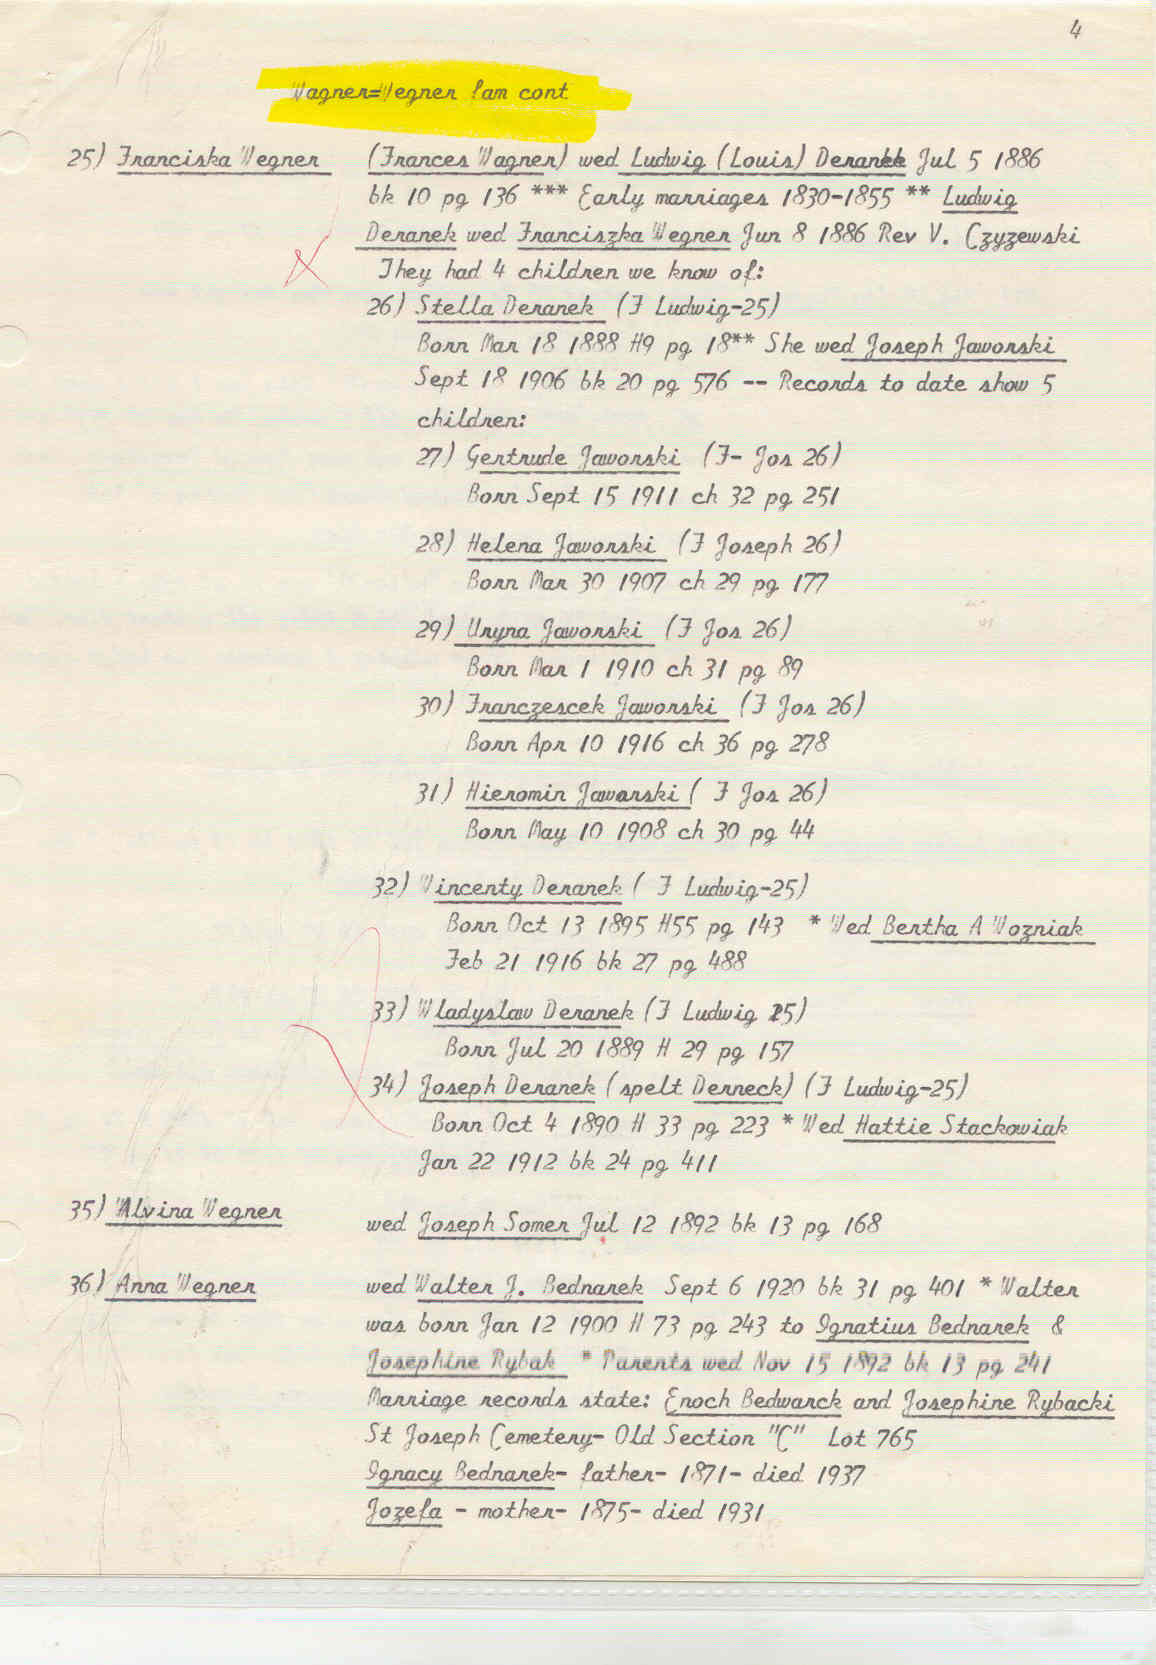 4
Wagner=Wegner fam cont
25) Franciska Wegner (Frances Wagner) wed Ludwig (Louis) Deranek Jul 5 1886
bk 10 pg 136 *** Early marriages 1830-1855 ** Ludwig
Deranek wed Franciszka Wegner Jun 8 1886 Rev V. Czyzewski
They had 4 children we know of:
26) Stella Deranek (F Ludwig-25)
Born Mar 18 1888 H9 pg 18** She wed Joseph Jaworski
Sept 18 1906 bk 20 pg 576 -- Records to date show 5
children:
27) Gertrude Jaworski (F- Jos 26)
Born Sept 15 1911 ch 32 pg 251
28) Helena Jaworski (F Joseph 26)
Born Mar 30 1907 ch 29 pg 177
29) Uryna Jaworski (F Jos 26)
Born Mar 1 1910 ch 31 pg 89
30) Franczescek Jaworski (F Jos 26)
Born Apr 10 1916 ch 36 pg 278
31) Hieromin Jaworski ( F Jos 26)
Born May 10 1908 ch 30 pg 44
32) Vincenty Deranek ( F Ludwig-25)
Born Oct 13 1895 H55 pg 143 * Wed Bertha A Wozniak
Feb 21 1916 bk 27 pg 488
33) Wladyslaw Deranek (F Ludwig 25)
Born Jul 20 1889 H 29 pg 157
34) Joseph Deranek (spelt Derneck) (F Ludwig-25)
Born Oct 4 1890 H 33 pg 223 * Wed Hattie Stackowiak
Jan 22 1912 bk 24 pg 411
35) Alvina Wegner wed Joseph Somer Jul 12 1892 bk 13 pg 168
36) Anna Wegner wed Walter J. Bednarek Sept 6 1920 bk 31 pg 401 * Walter
was born Jan 12 1900 H 73 pg 243 to Ignatius Bednarek &
Josephine Rybak * Parents wed Nov 15 1892 bk 13 pg 241
Marriage records state: Enoch Bedwarck and Josephine Rybacki
St Joseph Cemetery- Old Section "C" Lot 765
Ignacy Bednarek- father- 1871- died 1937
Jozefa - mother- 1875- died 1931